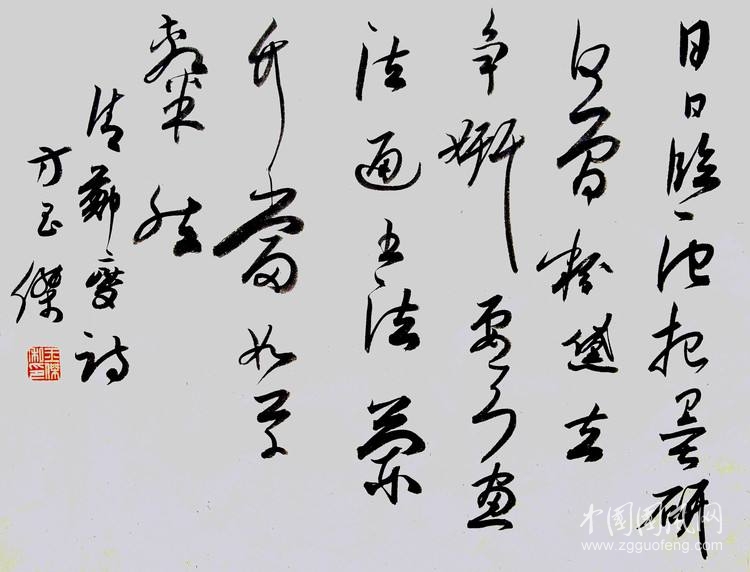 日日临池把墨研
何曾粉黛去
争妍要知画
法通书法兰
竹当如草
隶然
清郑燮诗
方玉傑
中国国风网
www.zgguofeng.com